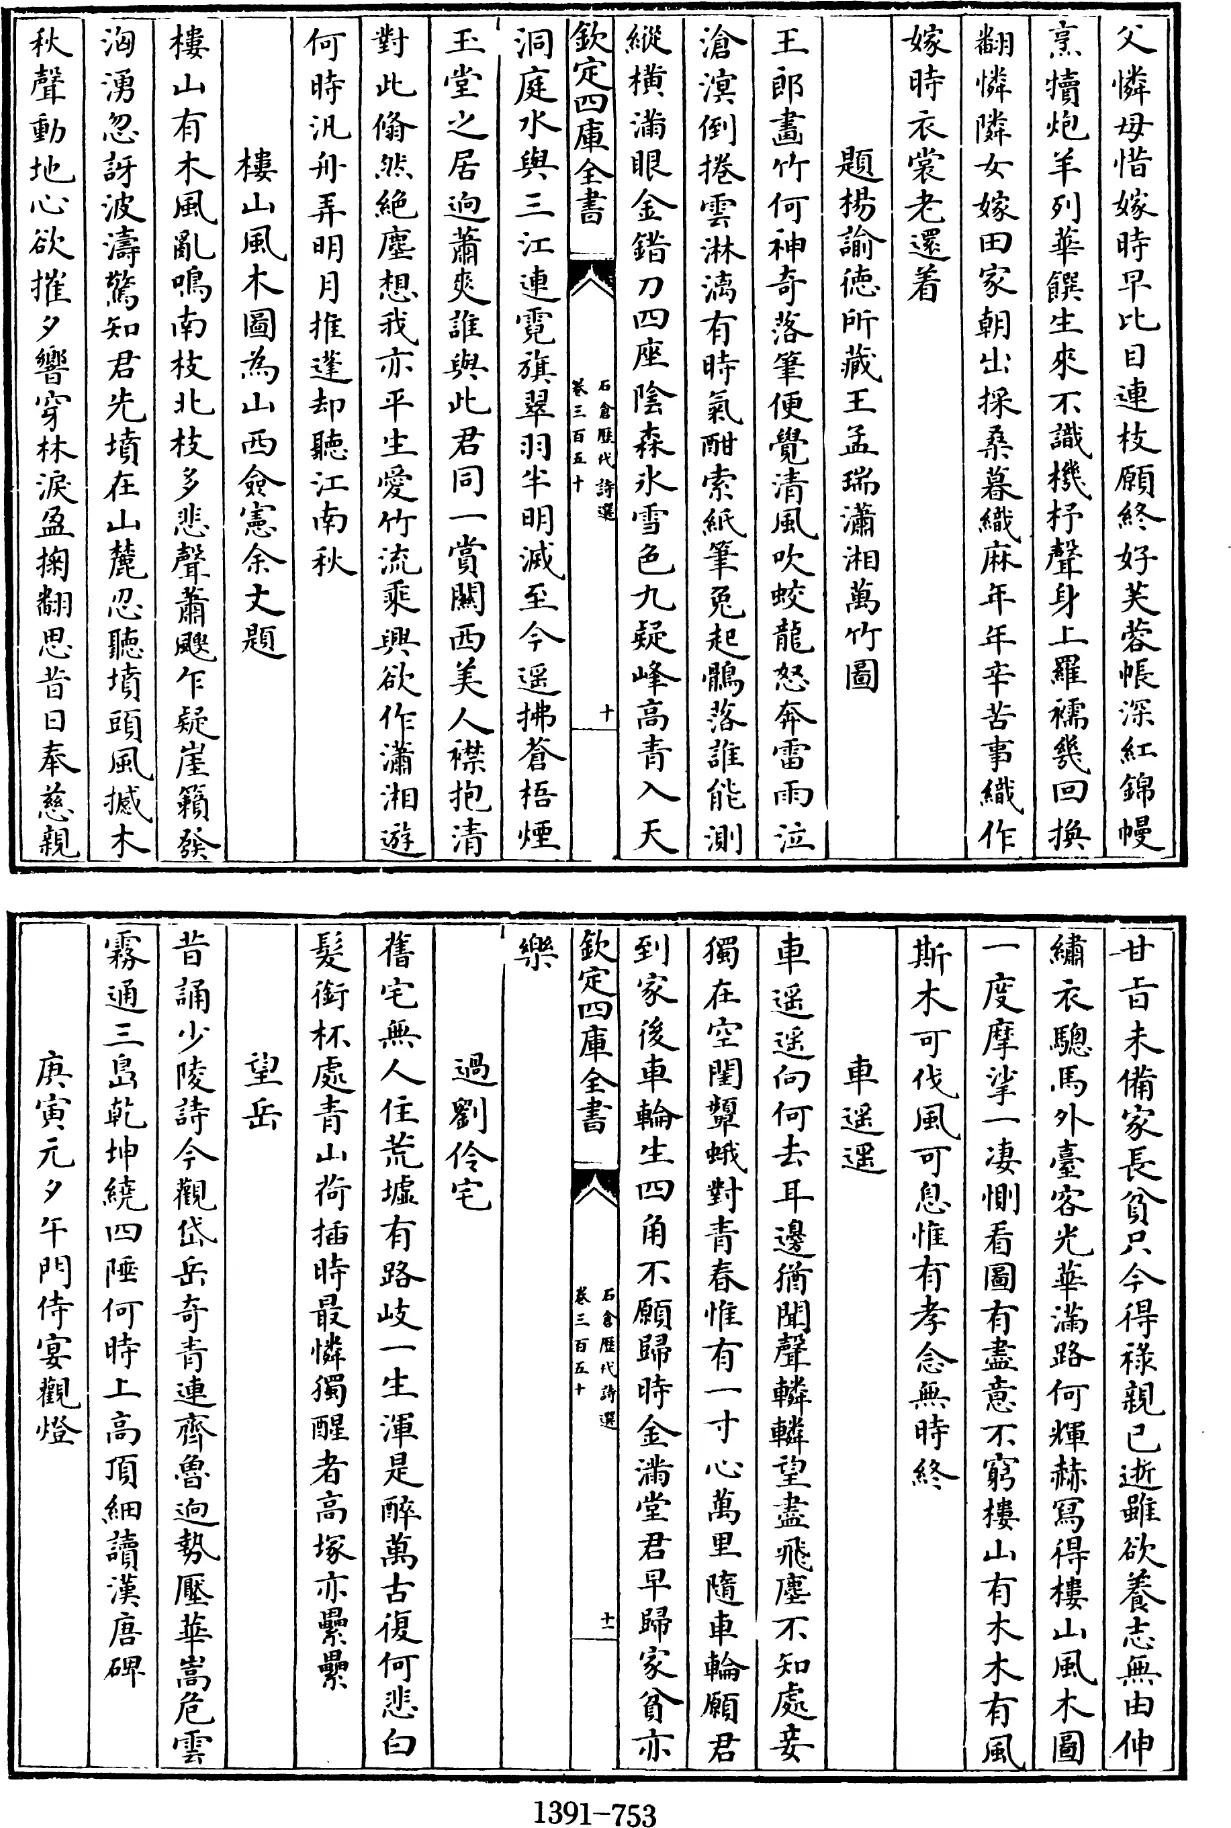 父憐母惜嫁時早比目連枝願終好芙蓉帳深紅錦幔
烹犢炮羊列華饌生來不識機杼聲身上羅襦幾回換
翻憐隣女嫁田家朝出採桑暮織麻年年辛苦事織作
嫁時衣裳老還着
題楊諭德所藏王孟瑞瀟湘萬竹圖
王郎畫竹何神奇落筆便覺清風吹蛟龍怒奔雷雨泣
滄溟倒捲雲淋漓有時氣酣索紙筆兎起鶻落誰能測
縱橫滿眼金錯刀四座陰森氷雪色九疑峰高青入天
欽定四庫全書
石倉歷代詩選
卷三百五十
十
洞庭水與三江連霓旗翠羽半明滅至今遥拂蒼梧煙
玉堂之居逈蕭爽誰與此君同一賞關西美人襟抱清
對此翛然絶塵想我亦平生愛竹流乘興欲作瀟湘遊
何時汎舟弄明月推蓬却聽江南秋
樓山風木圖為山西僉憲余丈題
樓山有木風亂鳴南枝北枝多悲聲蕭颼乍疑崖籟發
洶湧忽訝波濤驚知君先墳在山麓忍聽墳頭風撼木
秋聲動地心欲摧夕響穿林淚盈掬翻思昔日奉慈親
甘旨未備家長貧只今得祿親已逝雖欲養志無由伸
繡衣驄馬外臺客光華滿路何輝赫冩得樓山風木圖
一度摩挲一凄惻看圖有盡意不窮樓山有木木有風
斯木可伐風可息惟有孝念無時終
車遥遥
車遥遥向何去耳邊猶聞聲轔轔望盡飛塵不知處妾
獨在空閨顰蛾對青春惟有一寸心萬里隨車輪願君
到家後車輪生四角不願歸時金滿堂君早歸家貧亦
欽定四庫全書
石倉歷代詩選
卷三百五十
十一
樂
過劉伶宅
舊宅無人住荒墟有路岐一生渾是醉萬古復何悲白
髮銜杯處青山荷插時最憐獨醒者高塚亦纍纍
望岳
昔誦少陵詩今觀岱岳奇青連齊魯逈勢壓華嵩危雲
霧通三島乾坤繞四陲何時上高頂細讀漢唐碑
庚寅元夕午門侍宴觀燈
1391-753